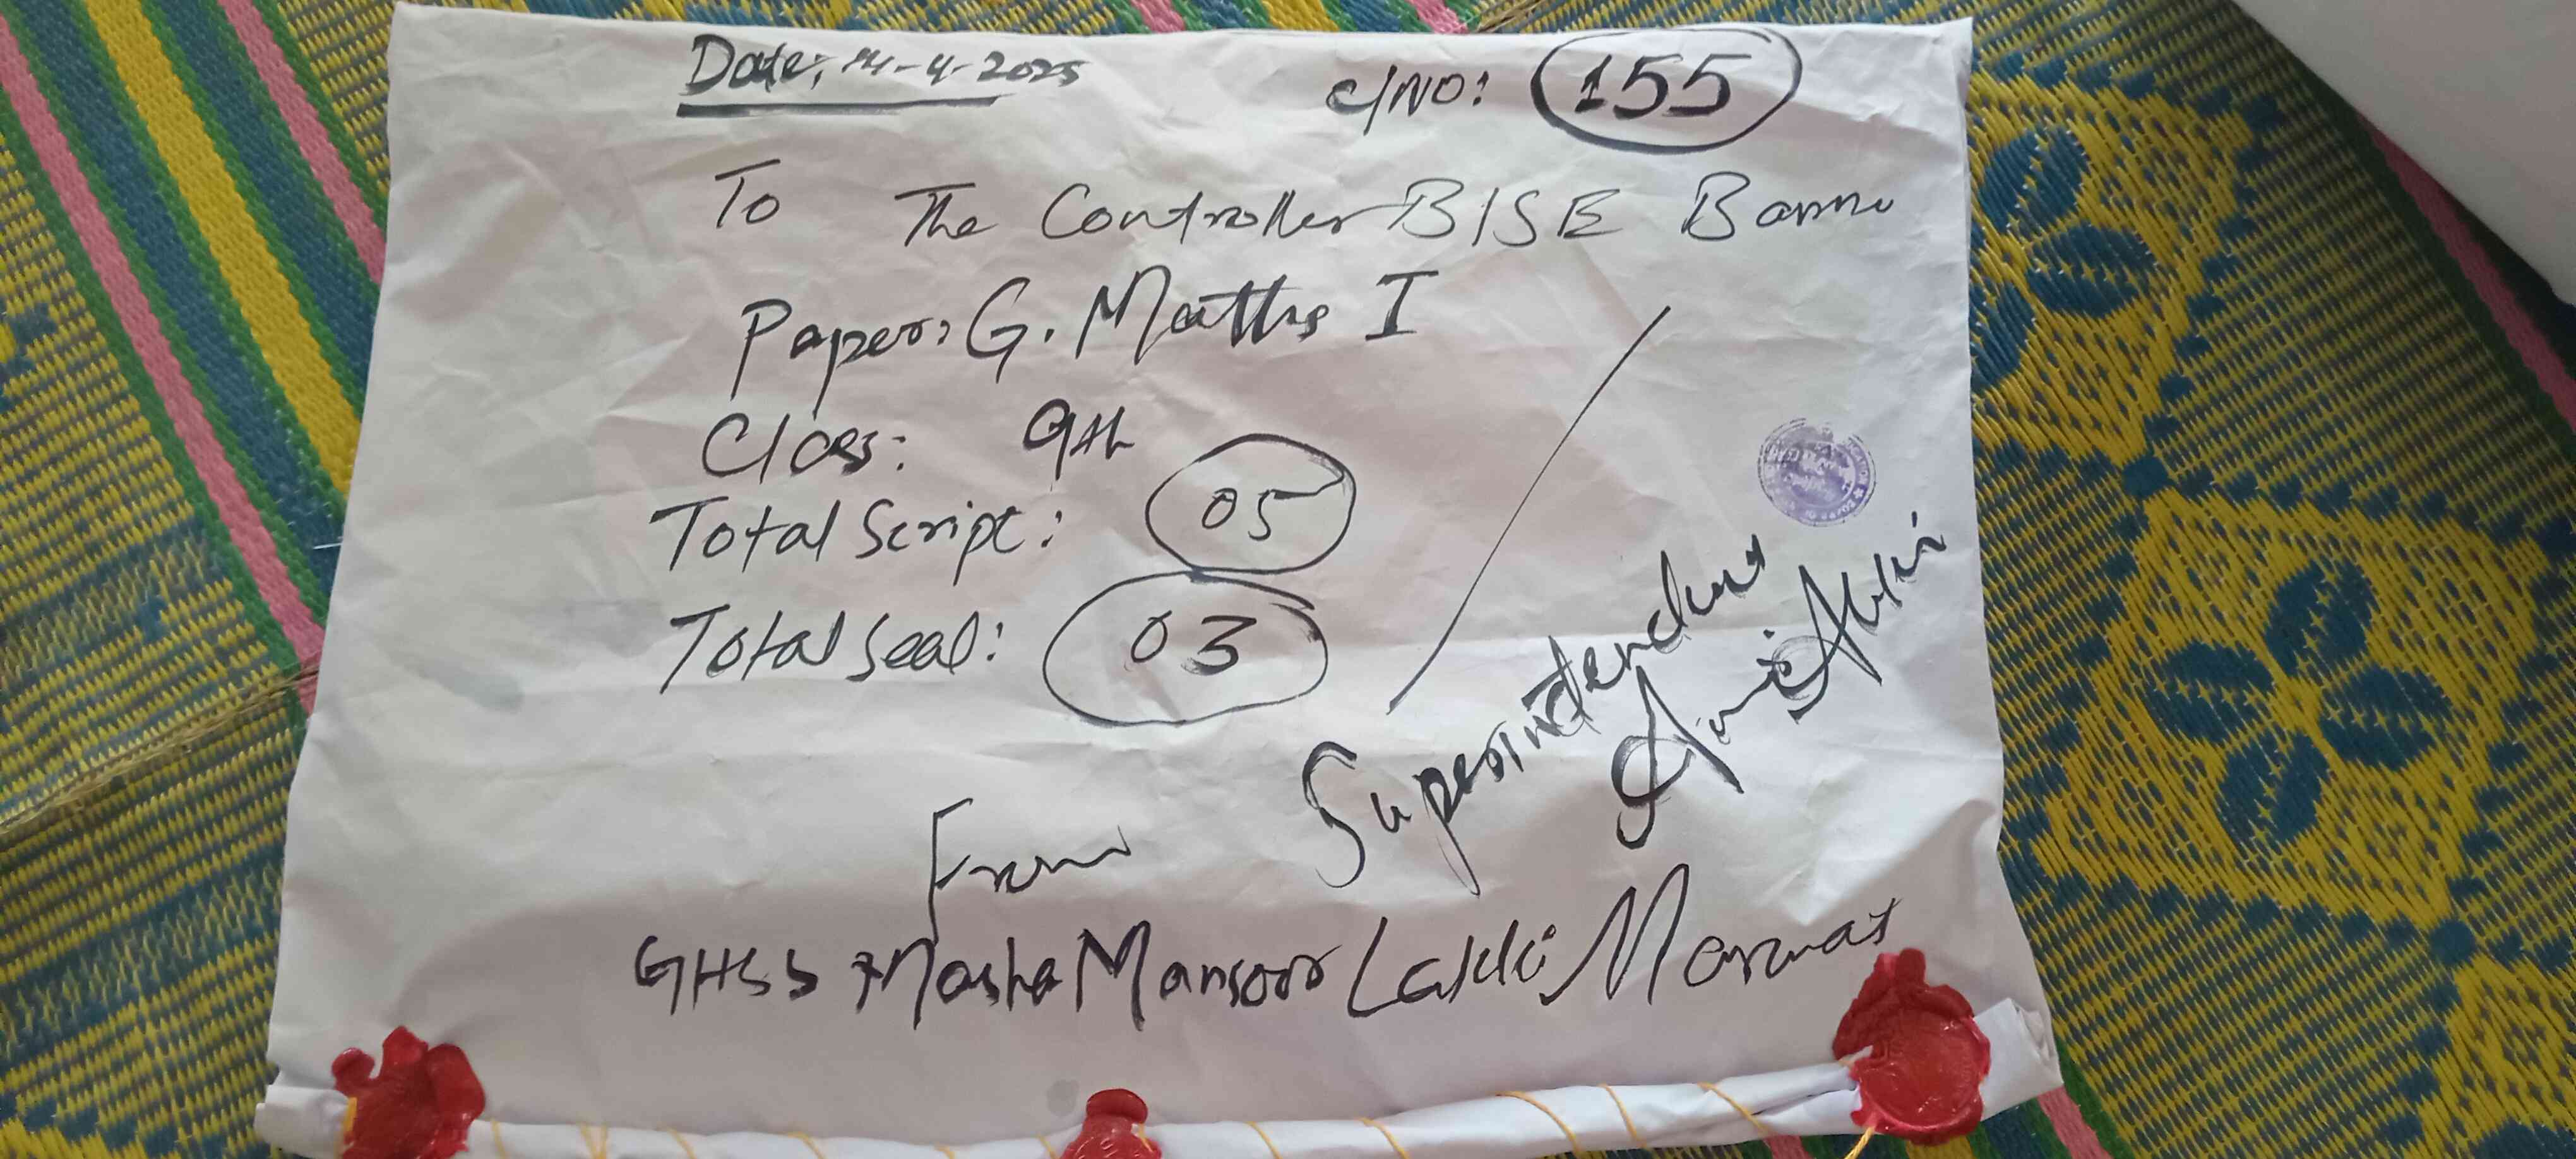 Date: 14-4-2025
C/NO: 155
To The Controller BISE Bannu
Paper: G. Maths I
Class: 9th
Total Script: 05
Total Seal: 03
Superintendent
From
GHSS Masha Mansoor Lakki Marwat